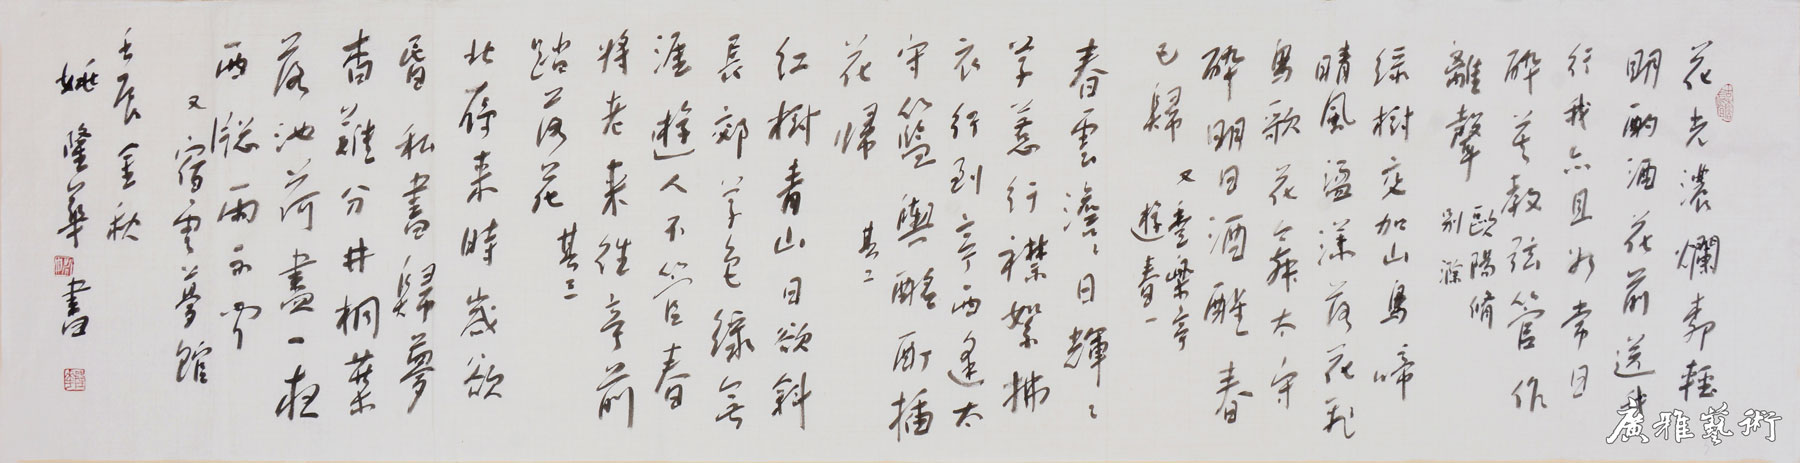 花光濃爛柳輕
明酌酒花前送我
行我亦且如常日
醉莫教弦管作
離聲
歐陽脩
別滁
綠樹交加山鳥啼
晴風盪漾落花飛
鳥歌花舞太守
醉明日酒醒春
已歸
又豐樂亭
遊春一
春雲澹〻日輝〻
草惹行襟絮拂
衣行到亭西逢太
守籃輿酩酊插
花歸
其二
紅樹青山日欲斜
長郊草色綠無
涯遊人不管春
將老來往亭前
踏落花
其三
北雁來時歲欲
昏私書歸夢
杳難分井桐葉
落池荷盡一夜
西窗雨不聞
又宿雲夢館
壬辰金秋
姚隆華書
廣雅藝術